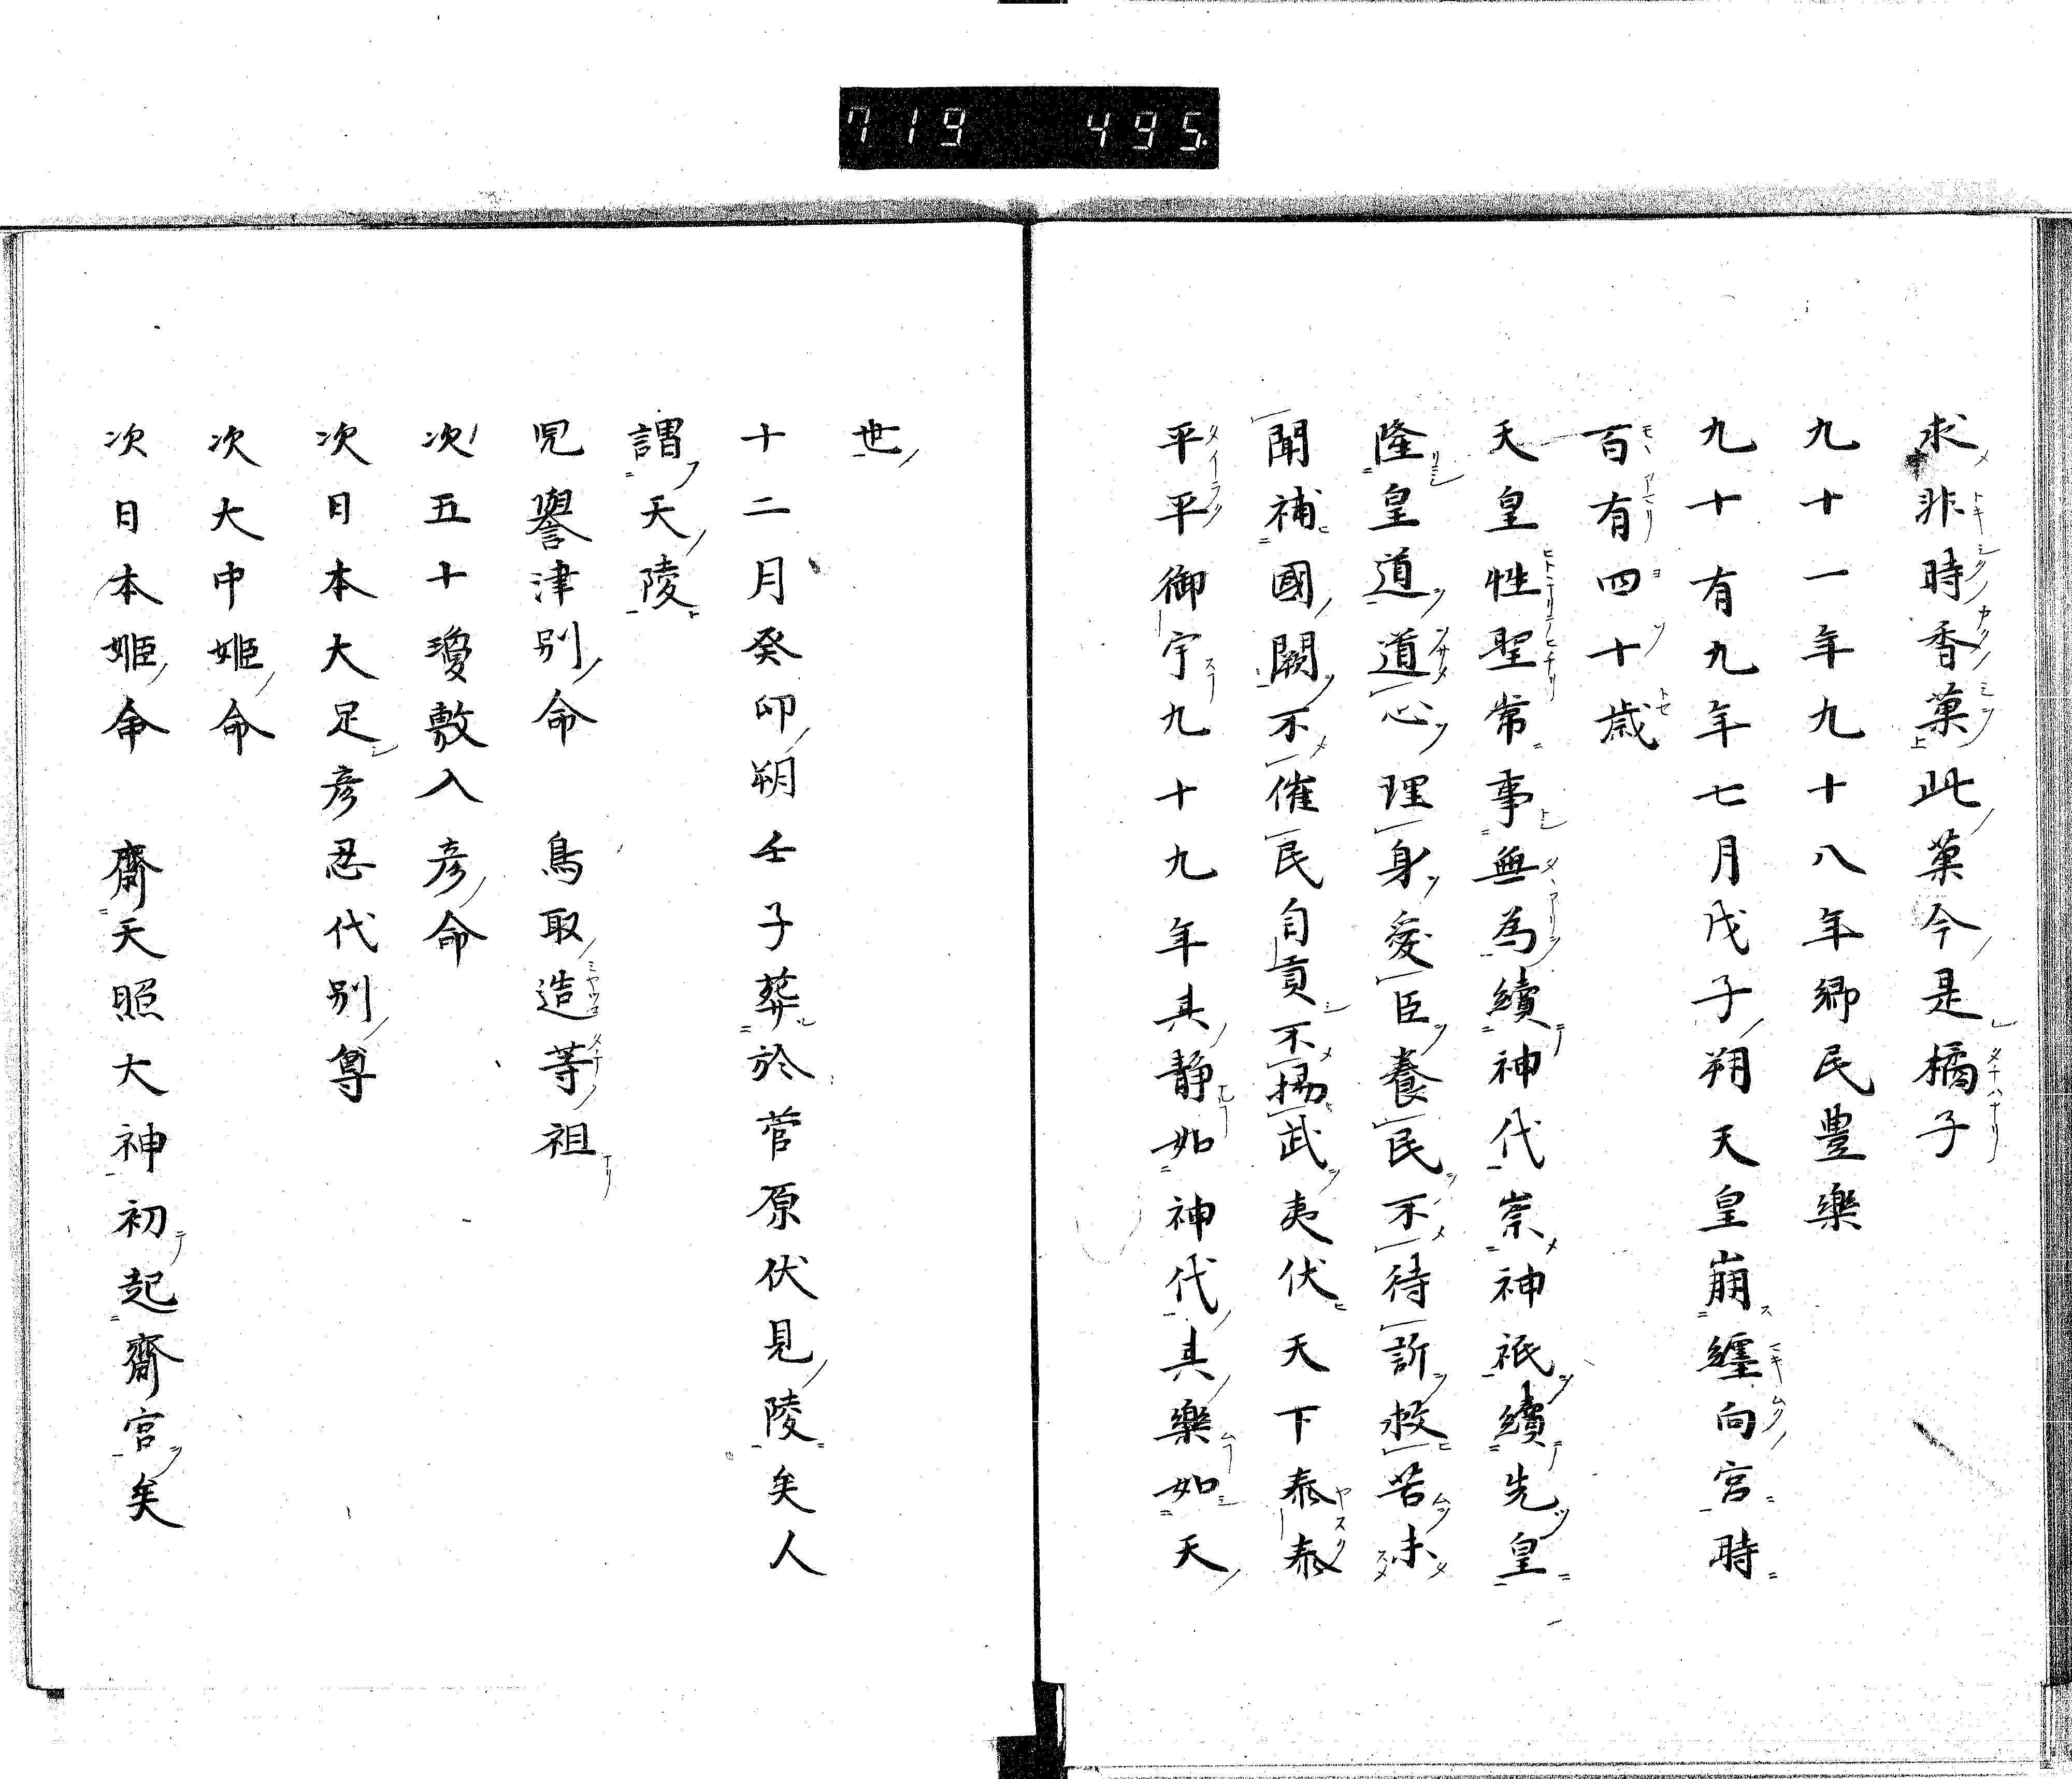 719 495
求非時香菓此菓今是橘子
九十一年九十八年郷民豊樂
九十有九年七月戊子朔天皇崩纏向宮時
百有四十歳
天皇性聖常事無為續神代崇神祇續先皇
隆皇道道心理身愛臣養民不待訴救苦未
聞補國闕不催民自貢不揚武夷伏天下泰泰
平平御宇九十九年其静如神代其樂如天
世
十二月癸卯朔壬子葬於菅原伏見陵矣人
謂天陵
児譽津別命 鳥取造等祖
次五十瓊敷入彦命
次日本大足彦忍代別尊
次大中姫命
次日本姫命 齋天照大神初起齋宮矣